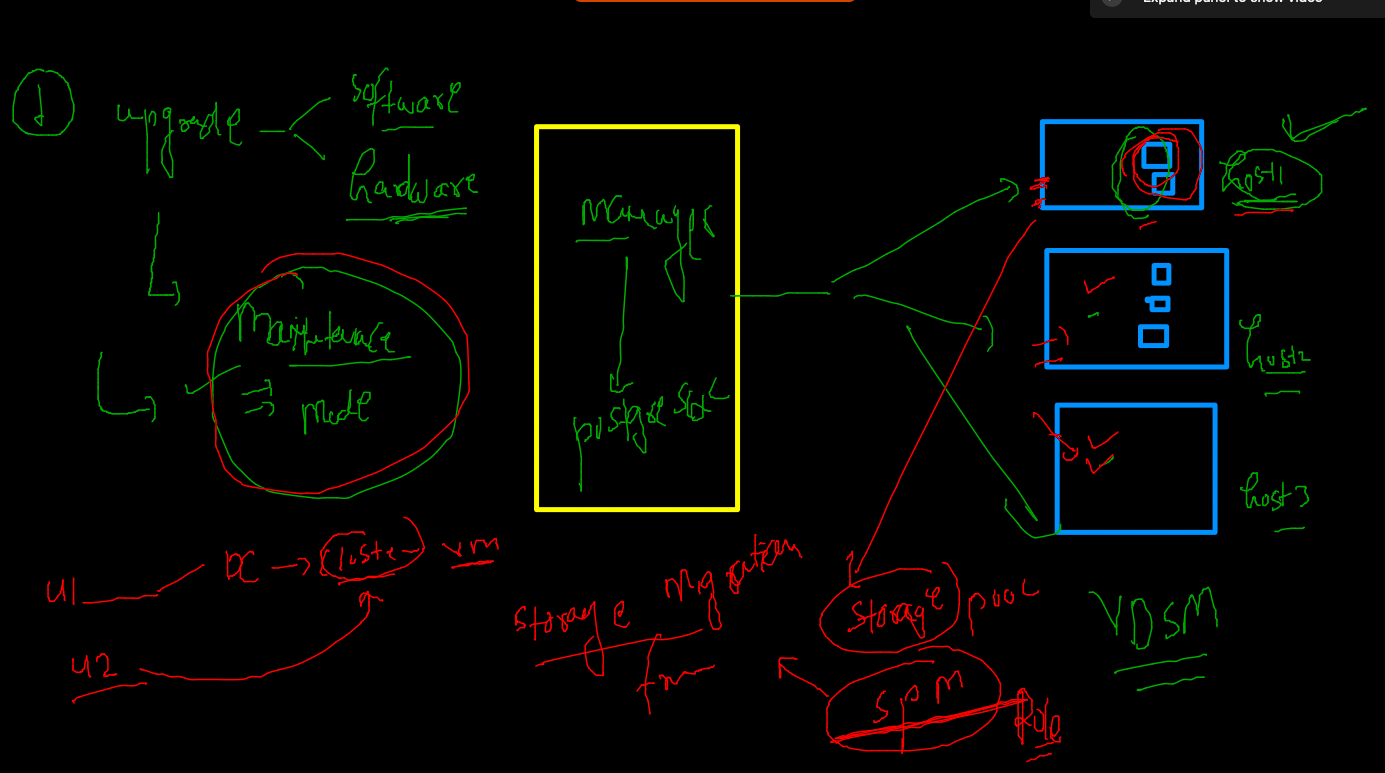 Expand panel to show video
1
upgrade
software
hardware
Maintenance
mode
Manager
host1
host2
host3
U1
DC
Cluster
vm
U2
Storage
Migration
Storage pool
SPM
Role
VDSM